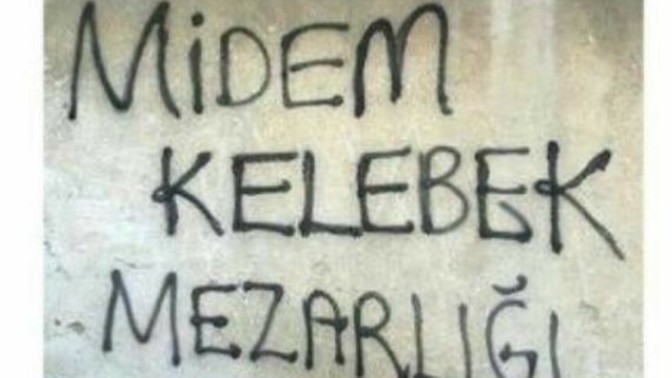 MİDEM
KELEBEK
MEZARLIĞI